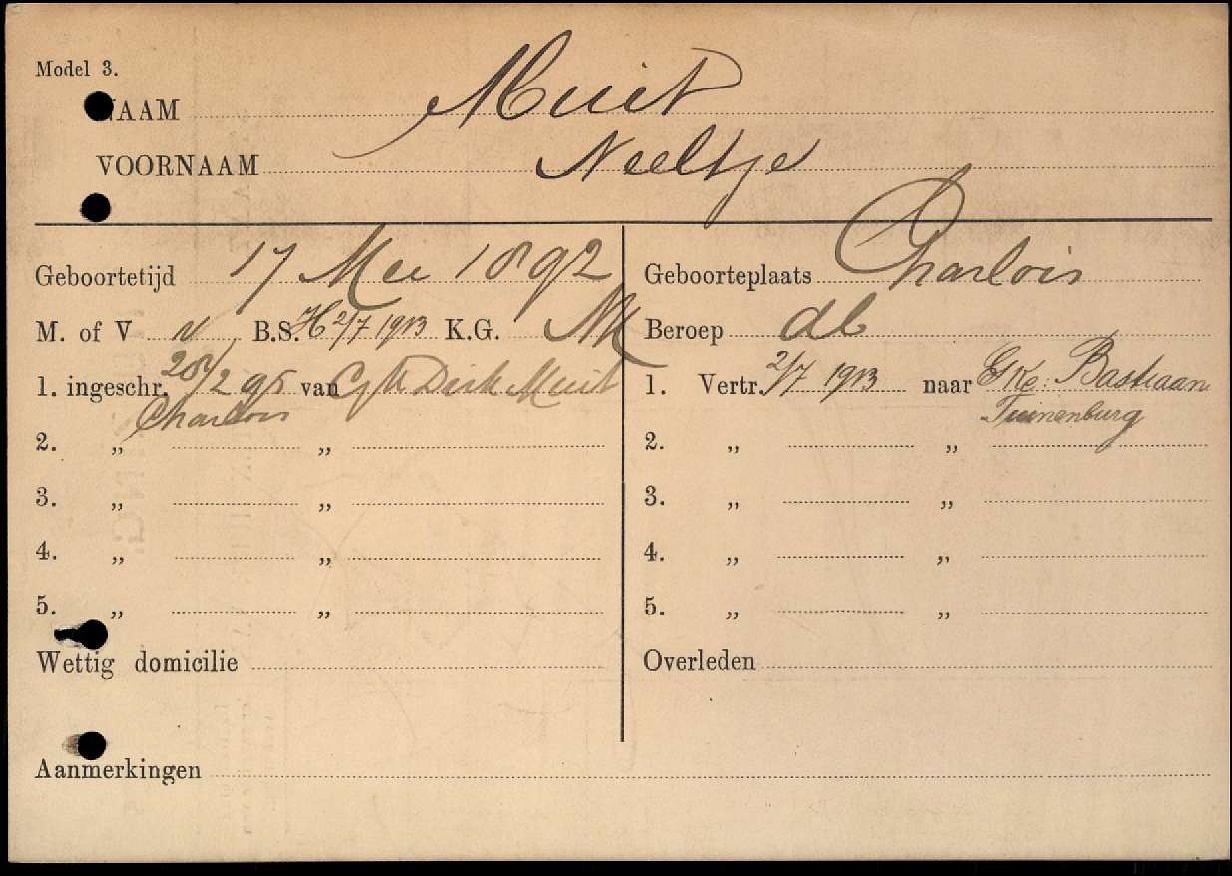 Model 3.
NAAM Muit
VOORNAAM Neeltje
Geboortetijd 17 Mei 1892
Geboorteplaats Charlois
M. of V v B.S. H 2/7 1913 K.G. NH
Beroep db
1. ingeschr. 28/2 95 van Dirk Muit
Charlois
1. Vertr. 2/7 1913 naar Bastiaan
Tuinenburg
2. „ „
2. „ „
3. „ „
3. „ „
4. „ „
4. „ „
5. „ „
5. „ „
Wettig domicilie
Overleden
Aanmerkingen